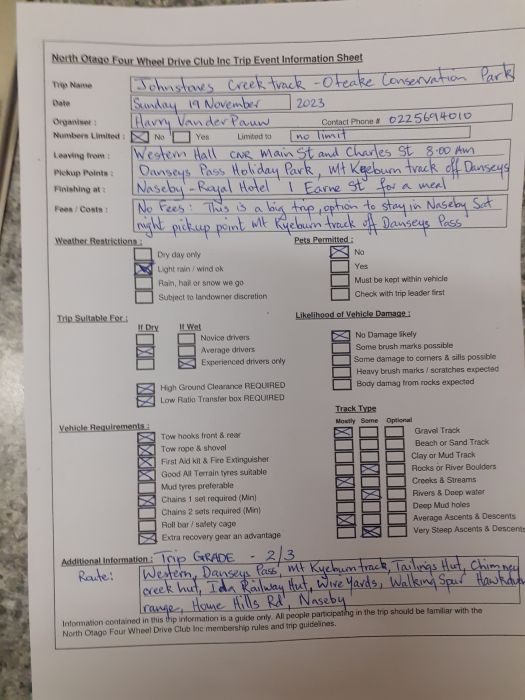 North Otago Four Wheel Drive Club Inc Trip Event Information Sheet
Trip Name Johnstones Creek track - Oteake Conservation Park
Date Sunday 19 November 2023
Organiser : Harry Van der Pauw Contact Phone # 0225694010
Numbers Limited : No Yes Limited to no limit
Leaving from : Western Hall CNR Main St and Charles St 8:00 Am
Pickup Points : Danseys Pass Holiday Park, Mt Kyeburn track off Danseys
Finishing at : Naseby - Royal Hotel 1 Earne St for a meal
Fees / Costs : No Fees : This is a big trip, option to stay in Naseby Sat
night pickup point Mt Kyeburn track off Danseys Pass
Weather Restrictions : Pets Permitted :
Dry day only No
Light rain / wind ok Yes
Rain, hail or snow we go Must be kept within vehicle
Subject to landowner discretion Check with trip leader first
Trip Suitable For : Likelihood of Vehicle Damage :
If Dry If Wet
Novice drivers No Damage likely
Average drivers Some brush marks possible
Experienced drivers only Some damage to corners & sills possible
Heavy brush marks / scratches expected
High Ground Clearance REQUIRED Body damag from rocks expected
Low Ratio Transfer box REQUIRED
Track Type
Vehicle Requirements : Mostly Some Optional
Tow hooks front & rear Gravel Track
Tow rope & shovel Beach or Sand Track
First Aid kit & Fire Extinguisher Clay or Mud Track
Good All Terrain tyres suitable Rocks or River Boulders
Mud tyres preferable Creeks & Streams
Chains 1 set required (Min) Rivers & Deep water
Chains 2 sets required (Min) Deep Mud holes
Roll bar / safety cage Average Ascents & Descents
Extra recovery gear an advantage Very Steep Ascents & Descents
Additional Information : Trip GRADE - 2/3
Route: Western, Danseys Pass, Mt Kyeburn track, Tailings Hut, Chimney
creek hut, Ida Railway Hut, Wire Yards, Walking Spur Hawkdun
range, Home Hills Rd, Naseby
Information contained in this trip information is a guide only. All people participating in the trip should be familiar with the
North Otago Four Wheel Drive Club Inc membership rules and trip guidelines.